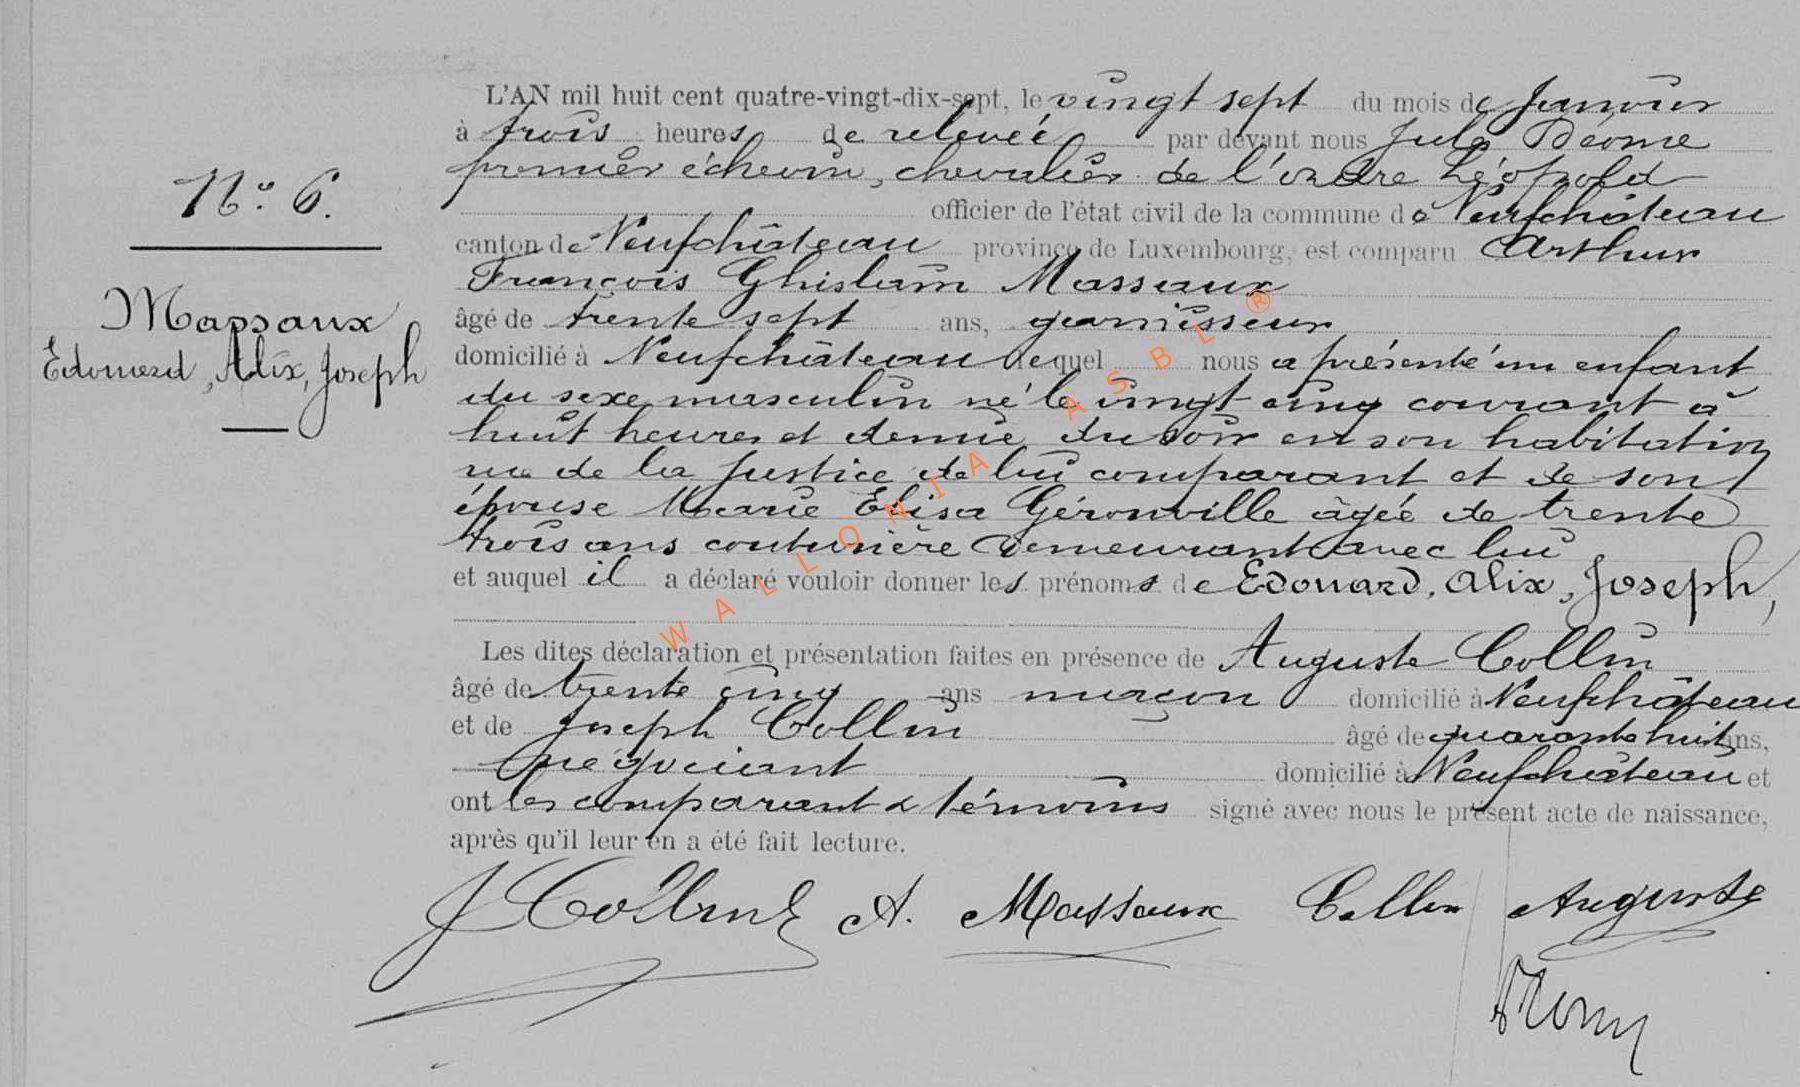 L'AN mil huit cent quatre-vingt-dix-sept, le vingt sept du mois de Janvier
à trois heures de relevée par devant nous Jules Déome
premier échevin, chevalier de l'ordre Léopold
N° 6.
officier de l'état civil de la commune de Neufchâteau
canton de Neufchâteau province de Luxembourg, est comparu Arthur
François Ghislain Massaux
Massaux
âgé de trente sept ans, garnisseur
Edouard, Alix, Joseph
domicilié à Neufchâteau lequel nous a présenté un enfant
du sexe masculin né le vingt cinq courant à
huit heures et demie du soir en son habitation
rue de la Justice de lui comparant et de son
épouse Marie Elisa Géronville âgée de trente
trois ans couturière demeurant avec lui
et auquel il a déclaré vouloir donner les prénoms de Edouard, Alix, Joseph,
Les dites déclaration et présentation faites en présence de Auguste Collin
âgé de trente cinq ans maçon domicilié à Neufchâteau
et de Joseph Collin âgé de quarante huit ans,
négociant domicilié à Neufchâteau et
ont les comparant & témoins signé avec nous le présent acte de naissance,
après qu'il leur en a été fait lecture.
J Collin A. Massaux Collin Auguste
WALLONIA ASBL ®